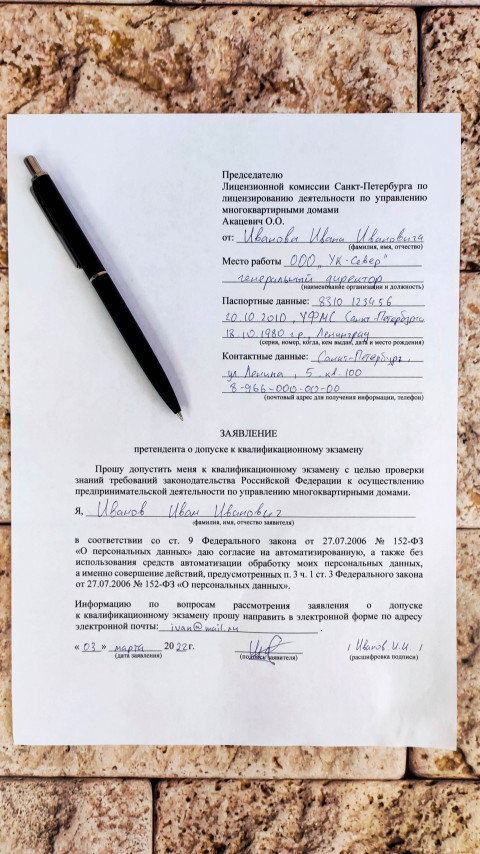 Председателю
Лицензионной комиссии Санкт-Петербурга по
лицензированию деятельности по управлению
многоквартирными домами
Акацевич О.О.
от: Иванова Ивана Ивановича
(фамилия, имя, отчество)
Место работы ООО „УК-Север"
генеральный директор
(наименование организации и должность)
Паспортные данные: 8310 123456
20.10.2010, УФМС Санкт-Петербурга
18.10.1980 г.р., Ленинград
(серия, номер, когда, кем выдан, дата и место рождения)
Контактные данные: Санкт-Петербург,
ул Ленина, 5 кв.100
8-966-000-00-00
(почтовый адрес для получения информации, телефон)
ЗАЯВЛЕНИЕ
претендента о допуске к квалификационному экзамену
Прошу допустить меня к квалификационному экзамену с целью проверки
знаний требований законодательства Российской Федерации к осуществлению
предпринимательской деятельности по управлению многоквартирными домами.
Я, Иванов Иван Иванович
(фамилия, имя, отчество заявителя)
в соответствии со ст. 9 Федерального закона от 27.07.2006 № 152-ФЗ
«О персональных данных» даю согласие на автоматизированную, а также без
использования средств автоматизации обработку моих персональных данных,
а именно совершение действий, предусмотренных п. 3 ч. 1 ст. 3 Федерального закона
от 27.07.2006 № 152-ФЗ «О персональных данных».
Информацию по вопросам рассмотрения заявления о допуске
к квалификационному экзамену прошу направить в электронной форме по адресу
электронной почты: ivan@mail.ru .
« 03 » марта 2022 г. / Иванов И.И /
(дата заявления) (подпись заявителя) (расшифровка подписи)